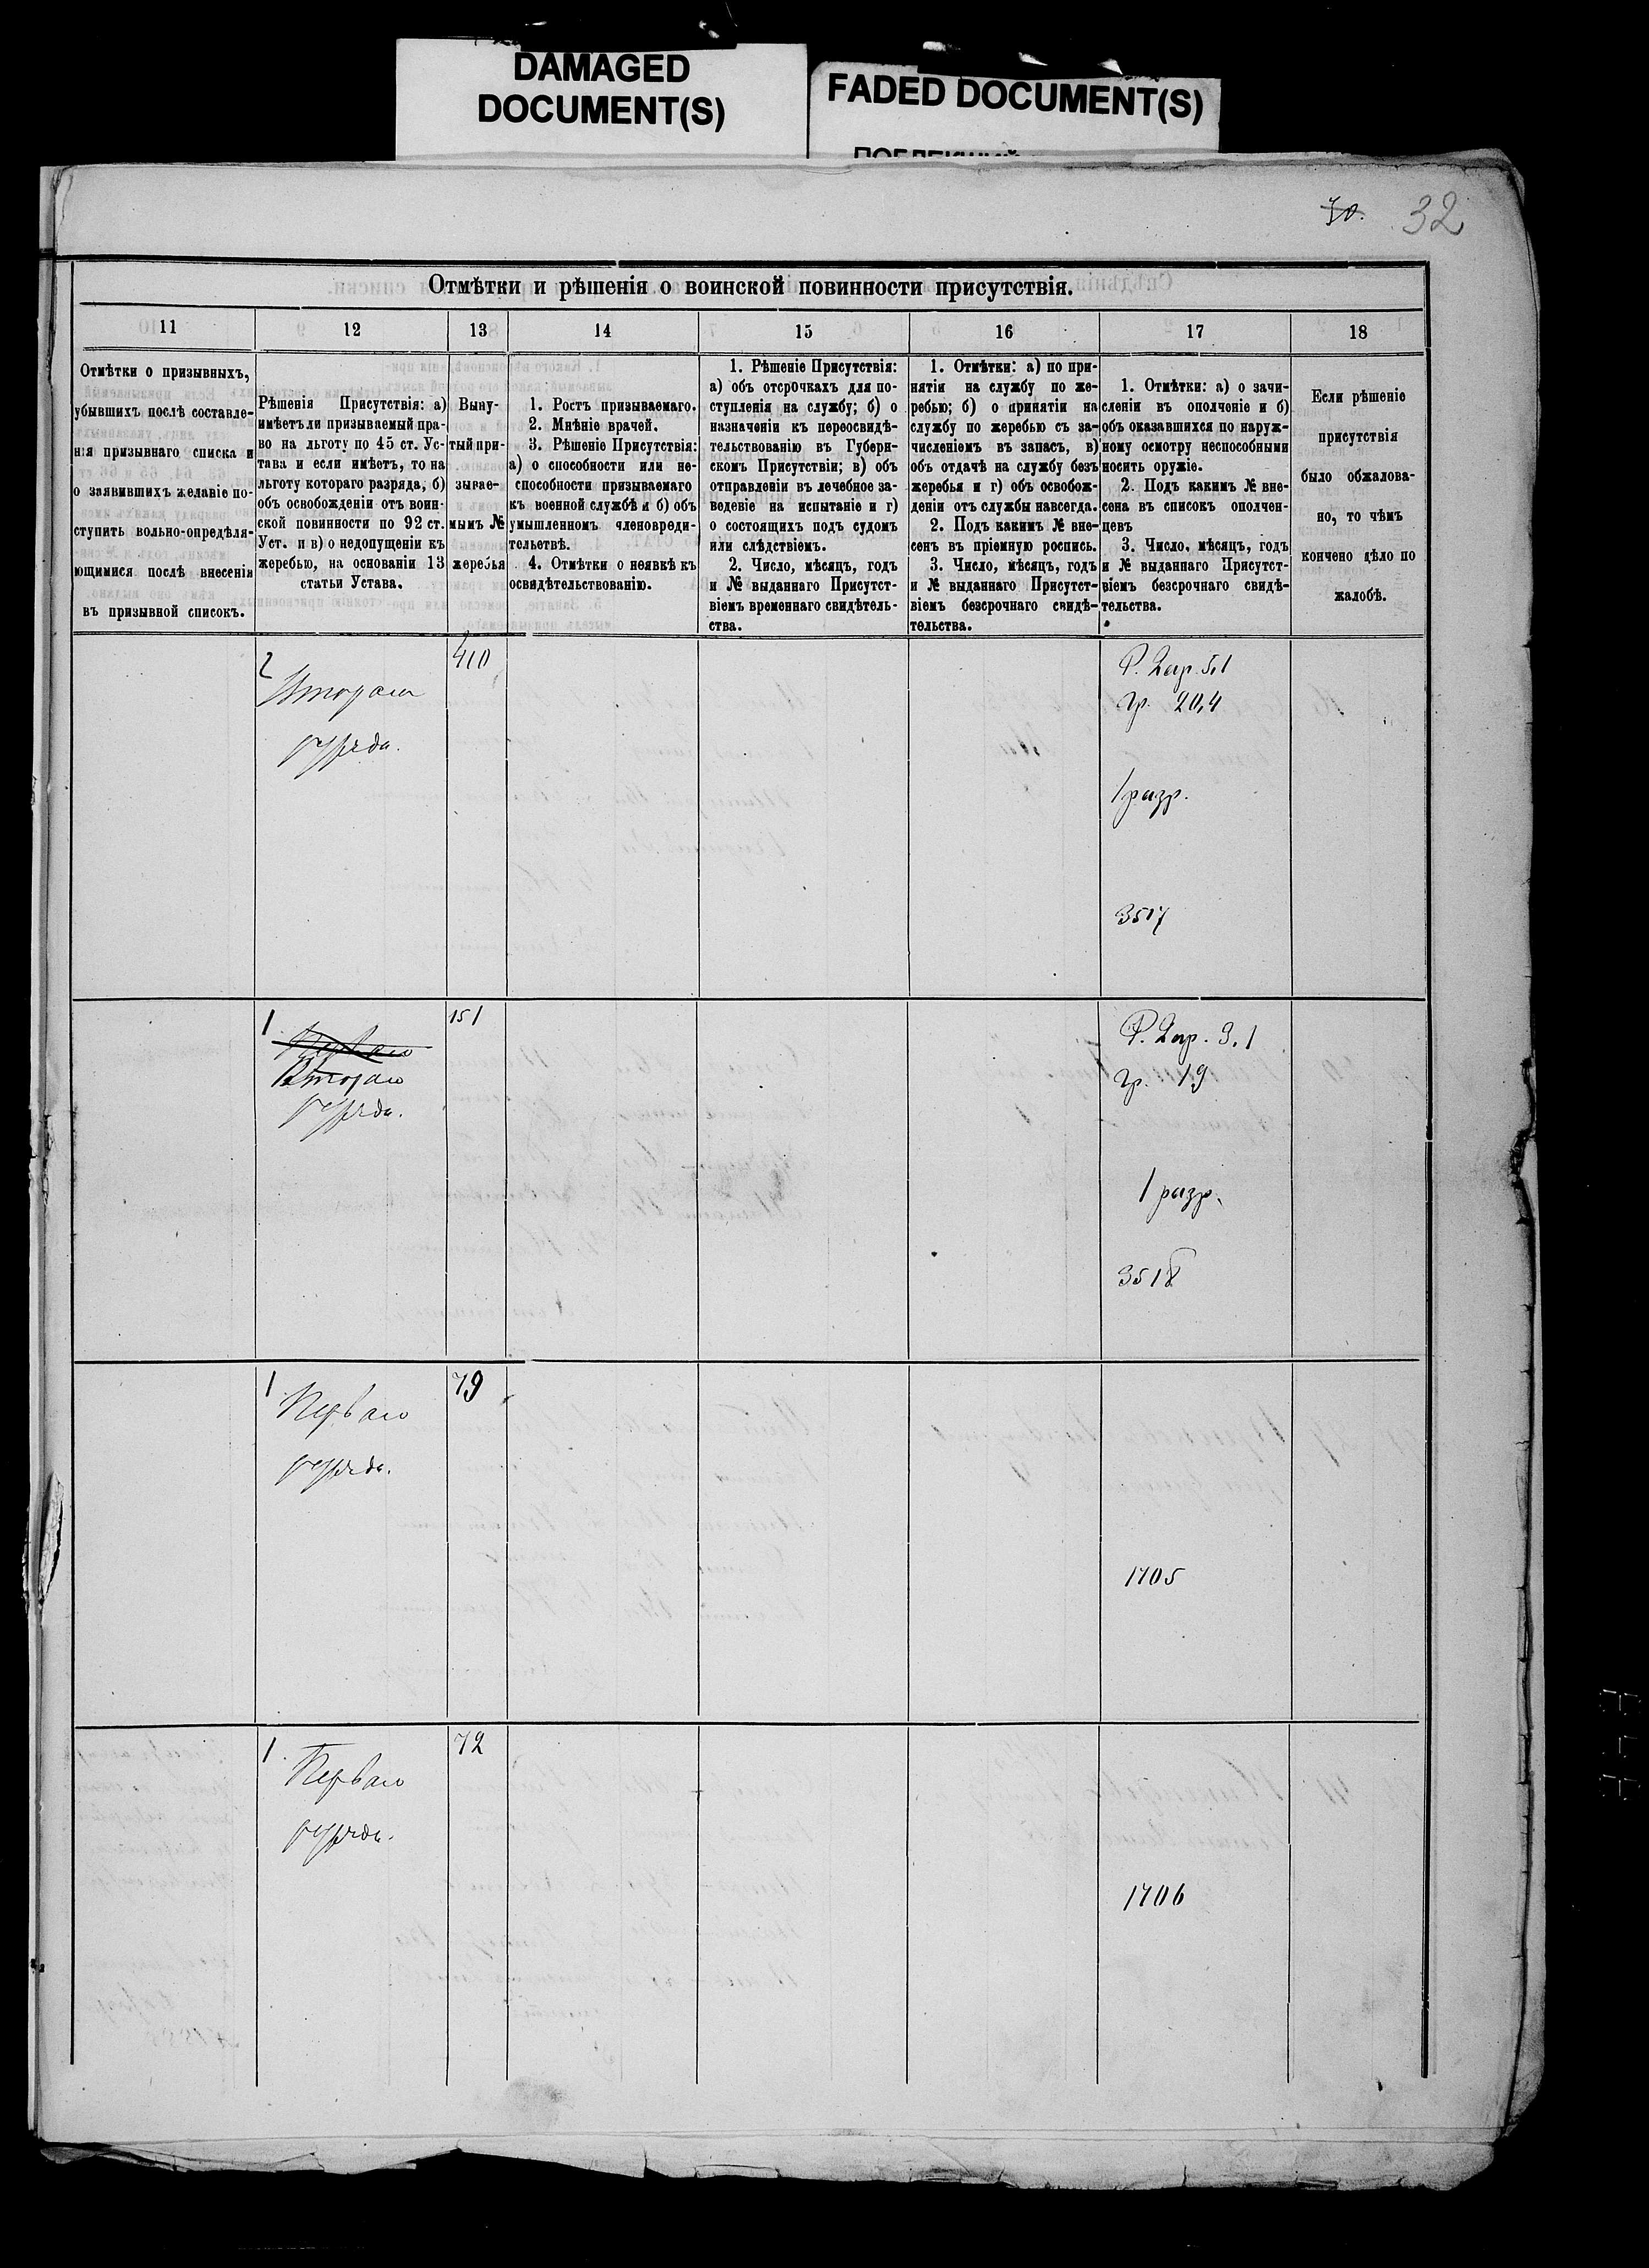 DAMAGED
DOCUMENT(S)
FADED DOCUMENT(S)
70.
32
Отмѣтки и рѣшенія о воинской повинности присутствія.
11
12
13
14
15
16
17
18
Отмѣтки о призывныхъ,
убывшихъ послѣ составле-
нія призывнаго списка и
о заявившихъ желаніе по-
ступить вольно-опредѣля-
ющимися послѣ внесенія
въ призывной списокъ.
Рѣшенія Присутствія: а)
имѣетъ ли призываемый пра-
во на льготу по 45 ст. Ус-
тава и если имѣетъ, то на
льготу котораго разряда, б)
объ освобожденіи отъ воин-
ской повинности по 92 ст.
Уст. и в) о недопущеніи къ
жеребью, на основаніи 13
статьи Устава.
Выну-
тый при-
зывае-
мымъ №
жеребья
1. Ростъ призываемаго.
2. Мнѣніе врачей.
3. Рѣшеніе Присутствія:
а) о способности или не-
способности призываемаго
къ военной службѣ и б) объ
умышленномъ членовреди-
тельствѣ.
4. Отмѣтки о неявкѣ къ
освидѣтельствованію.
1. Рѣшеніе Присутствія:
а) объ отсрочкахъ для по-
ступленія на службу; б) о
назначеніи къ переосвидѣ-
тельствованію въ Губерн-
скомъ Присутствіи; в) объ
отправленіи въ лечебное за-
веденіе на испытаніе и г)
о состоящихъ подъ судомъ
или слѣдствіемъ.
2. Число, мѣсяцъ, годъ
и № выданнаго Присутст-
віемъ временнаго свидѣтель-
ства.
1. Отмѣтки: а) по при-
нятіи на службу по же-
ребью; б) о принятіи на
службу по жеребью съ за-
численіемъ въ запасъ, в)
объ отдачѣ на службу безъ
жеребья и г) объ освобож-
деніи отъ службы навсегда.
2. Подъ какимъ № вне-
сенъ въ пріемную роспись.
3. Число, мѣсяцъ, годъ
и № выданнаго Присутст-
віемъ безсрочнаго свидѣ-
тельства.
1. Отмѣтки: а) о зачи-
сленіи въ ополченіе и б)
объ оказавшихся по наруж-
ному осмотру неспособными
носить оружіе.
2. Подъ какимъ № вне-
сена въ списокъ ополчен-
цевъ
3. Число, мѣсяцъ, годъ
и № выданнаго Присутст-
віемъ безсрочнаго свидѣ-
тельства.
Если рѣшеніе
присутствія
было обжалова-
но, то чѣмъ
кончено дѣло по
жалобѣ.
2
Втораго
разряда.
410
Р. 2 ар. 5,1
гр. 20,4
1 разр.
3517
1.
Перваго
Втораго
разряда.
151
Р. 2 ар. 3,1
гр. 19
1 разр.
3518
1.
Перваго
разряда.
79
1705
1.
Перваго
разряда.
72
1706